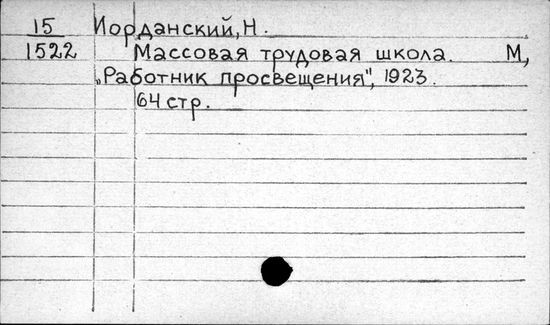 15 Иорданский, Н.
1522 Массовая трудовая школа. М,
„Работник просвещения", 1923.
64 стр.